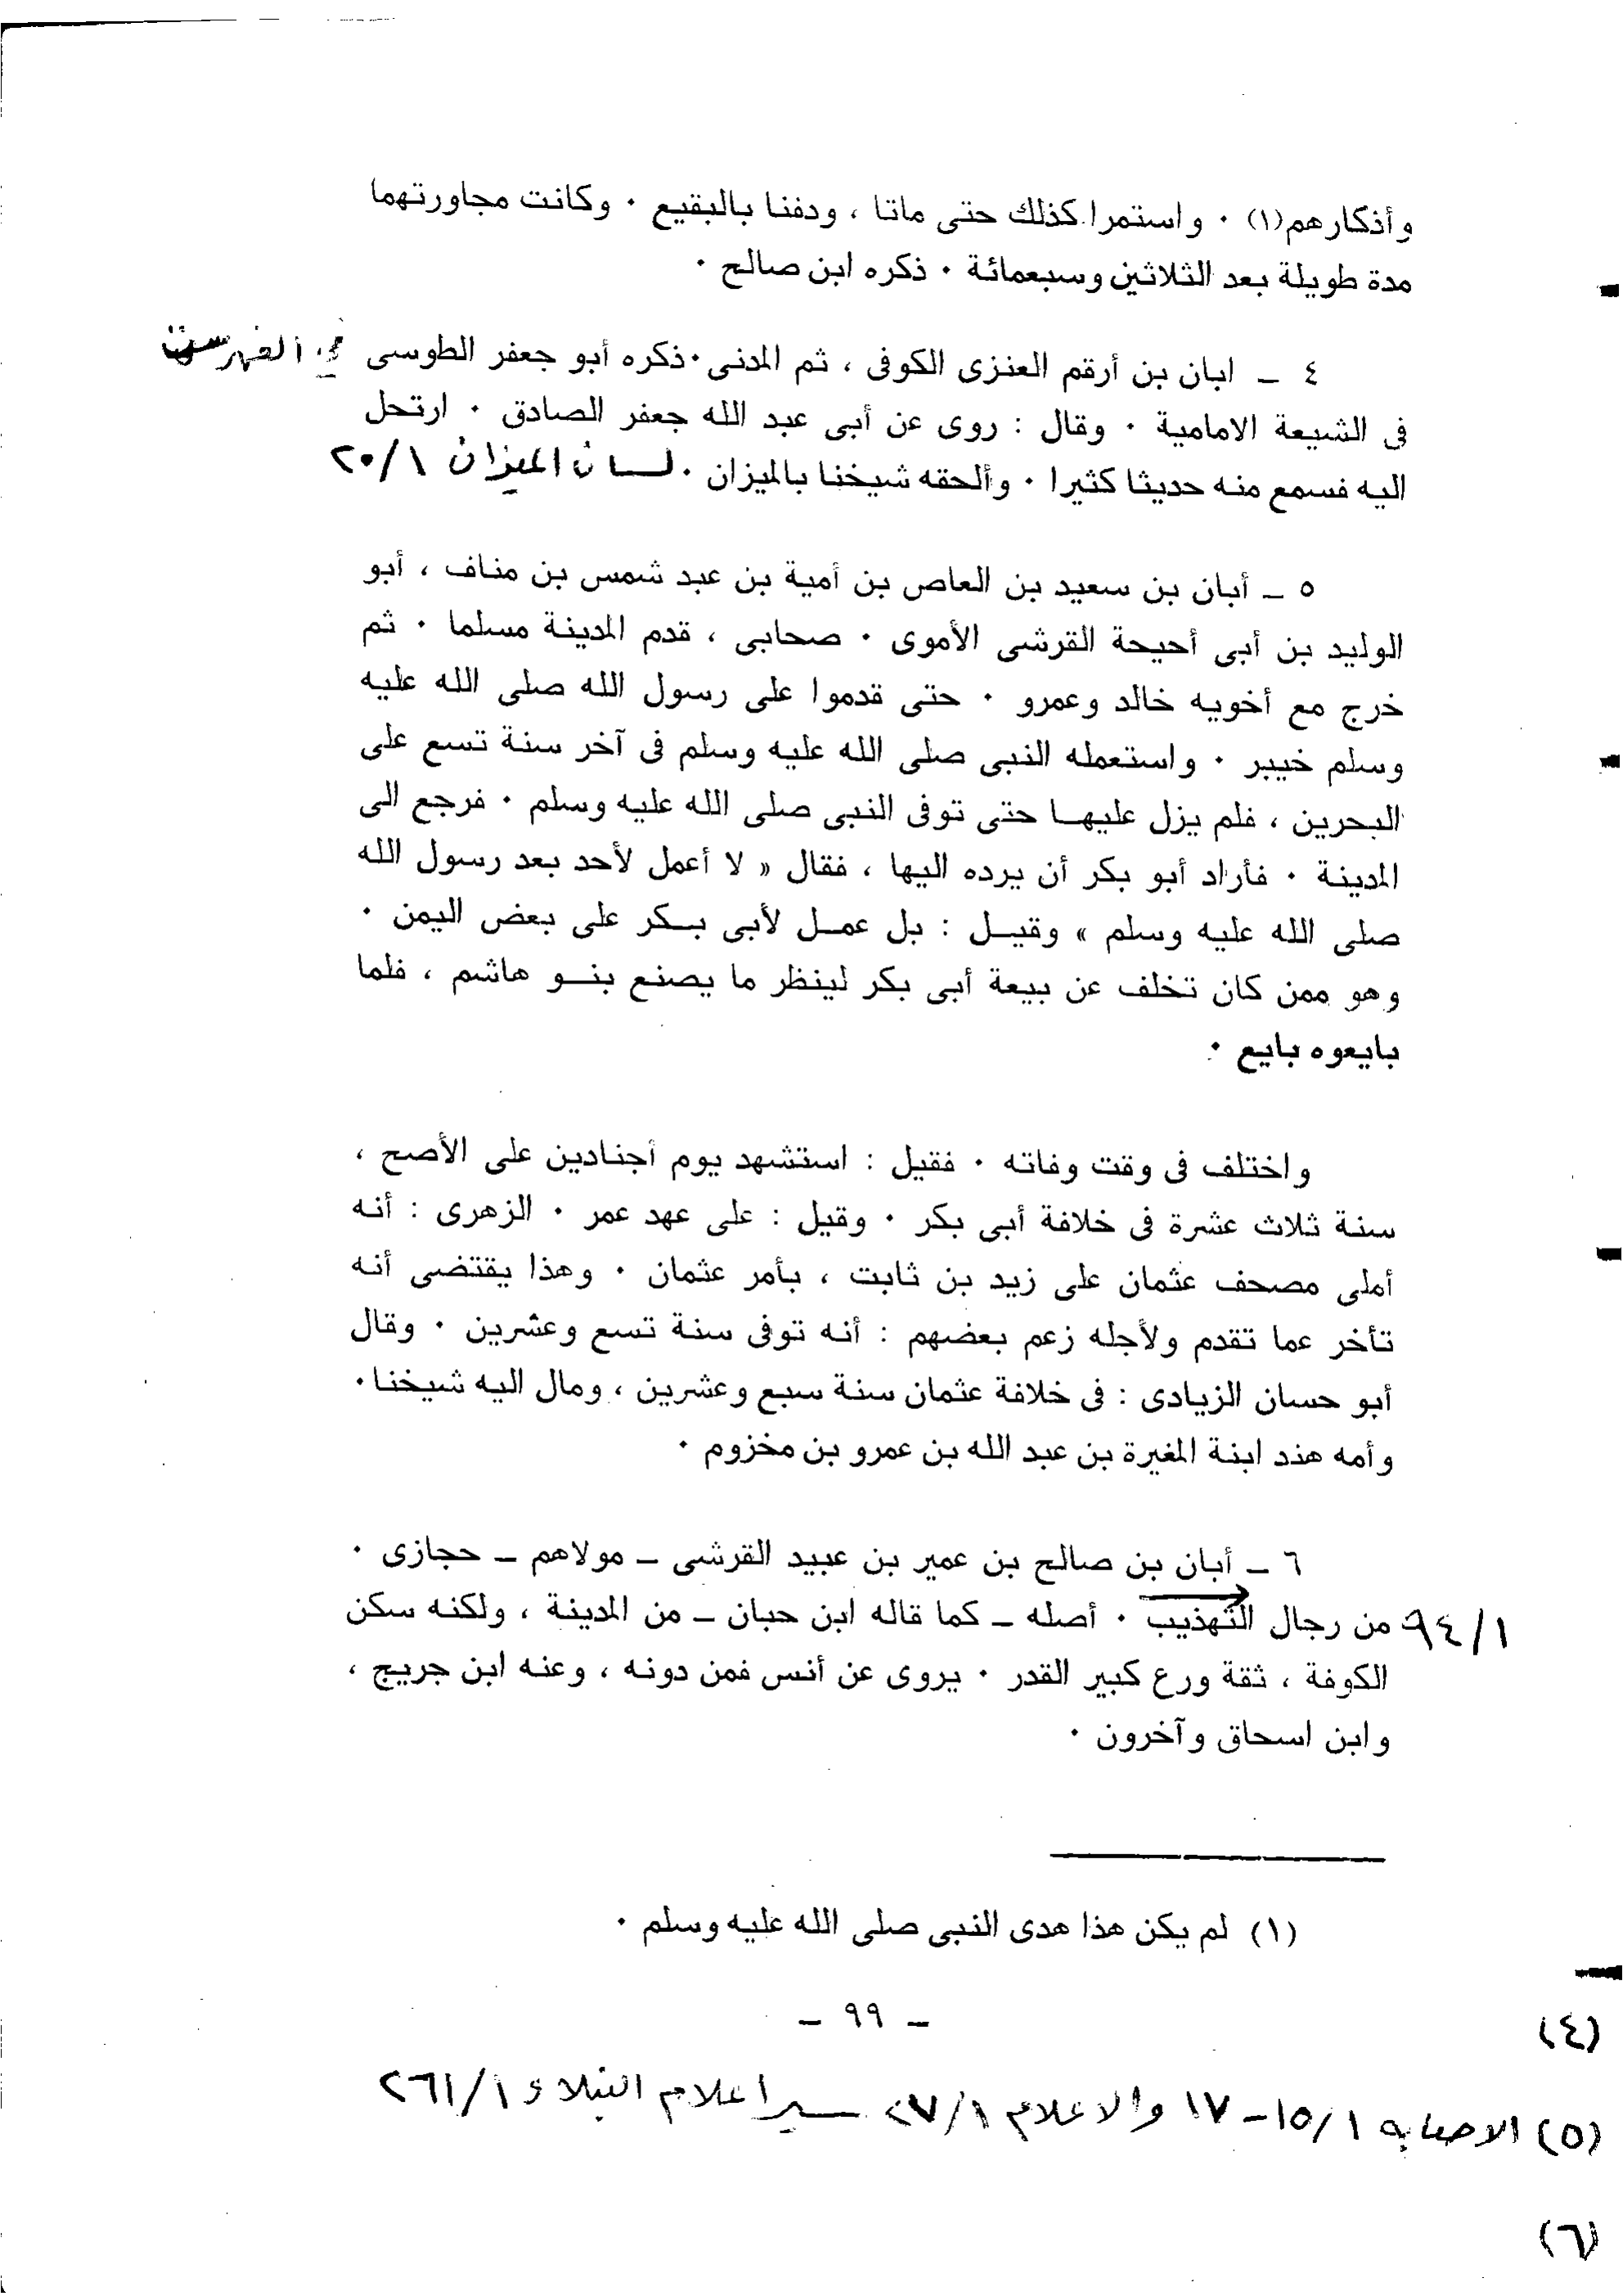 وأذكارهم(١) ٠ واستمرا كذلك حتى ماتا ، ودفنا بالبقيع ٠ وكانت مجاورتهما
مدة طويلة بعد الثلاثين وسبعمائة ٠ ذكره ابن صالح ٠
٤ ـ ابان بن أرقم العنزى الكوفى ، ثم المدنى ٠ ذكره أبو جعفر الطوسى في الفهرست
فى الشيعة الامامية ٠ وقال : روى عن أبى عبد الله جعفر الصادق ٠ ارتحل
اليه فسمع منه حديثا كثيرا ٠ وألحقه شيخنا بالميزان ٠ لسان الميزان ٢٠/١
٥ ـ أبان بن سعيد بن العاص بن أمية بن عبد شمس بن مناف ، أبو
الوليد بن أبى أحيحة القرشى الأموى ٠ صحابى ، قدم المدينة مسلما ٠ ثم
خرج مع أخويه خالد وعمرو ٠ حتى قدموا على رسول الله صلى الله عليه
وسلم خيبر ٠ واستعمله النبى صلى الله عليه وسلم فى آخر سنة تسع على
البحرين ، فلم يزل عليهــا حتى توفى النبى صلى الله عليه وسلم ٠ فرجع الى
المدينة ٠ فأراد أبو بكر أن يرده اليها ، فقال « لا أعمل لأحد بعد رسول الله
صلى الله عليه وسلم » وقيــل : بل عمــل لأبى بــكر على بعض اليمن ٠
وهو ممن كان تخلف عن بيعة أبى بكر لينظر ما يصنع بنــو هاشم ، فلما
بايعوه بايع ٠
واختلف فى وقت وفاته ٠ فقيل : استشهد يوم أجنادين على الأصح ،
سنة ثلاث عشرة فى خلافة أبى بكر ٠ وقيل : على عهد عمر ٠ الزهرى : أنه
أملى مصحف عثمان على زيد بن ثابت ، بأمر عثمان ٠ وهذا يقتضى أنه
تأخر عما تقدم ولأجله زعم بعضهم : أنه توفى سنة تسع وعشرين ٠ وقال
أبو حسان الزيادى : فى خلافة عثمان سنة سبع وعشرين ، ومال اليه شيخنا ٠
وأمه هند ابنة المغيرة بن عبد الله بن عمرو بن مخزوم ٠
٦ ـ أبان بن صالح بن عمير بن عبيد القرشى ـ مولاهم ـ حجازى ٠
٩٤/١ من رجال التهذيب ٠ أصله ـ كما قاله ابن حبان ـ من المدينة ، ولكنه سكن
الكوفة ، ثقة ورع كبير القدر ٠ يروى عن أنس فمن دونه ، وعنه ابن جريج ،
وابن اسحاق وآخرون ٠
(١) لم يكن هذا هدى النبى صلى الله عليه وسلم ٠
ـ ٩٩ ـ
(٤)
(٥) الاصابه ١٥/١ـ١٧ والاعلام ٢٧/١ سير اعلام النبلاء ٢٦١/١
(٦)